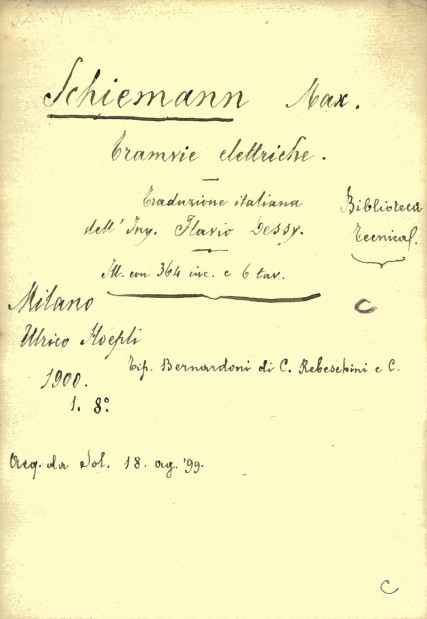 Schiemann Max.
Tramvie elettriche.
Traduzione italiana
dell' Ing. Flavio Dessy.
Biblioteca
Tecnica.
Ill. con 364 inc. e 6 tav.
C
Milano
Ulrico Hoepli
Tip. Bernardoni di C. Rebeschini e C.
1900.
1. 8º
Acq. da Sol. 18. ag. '99.
C